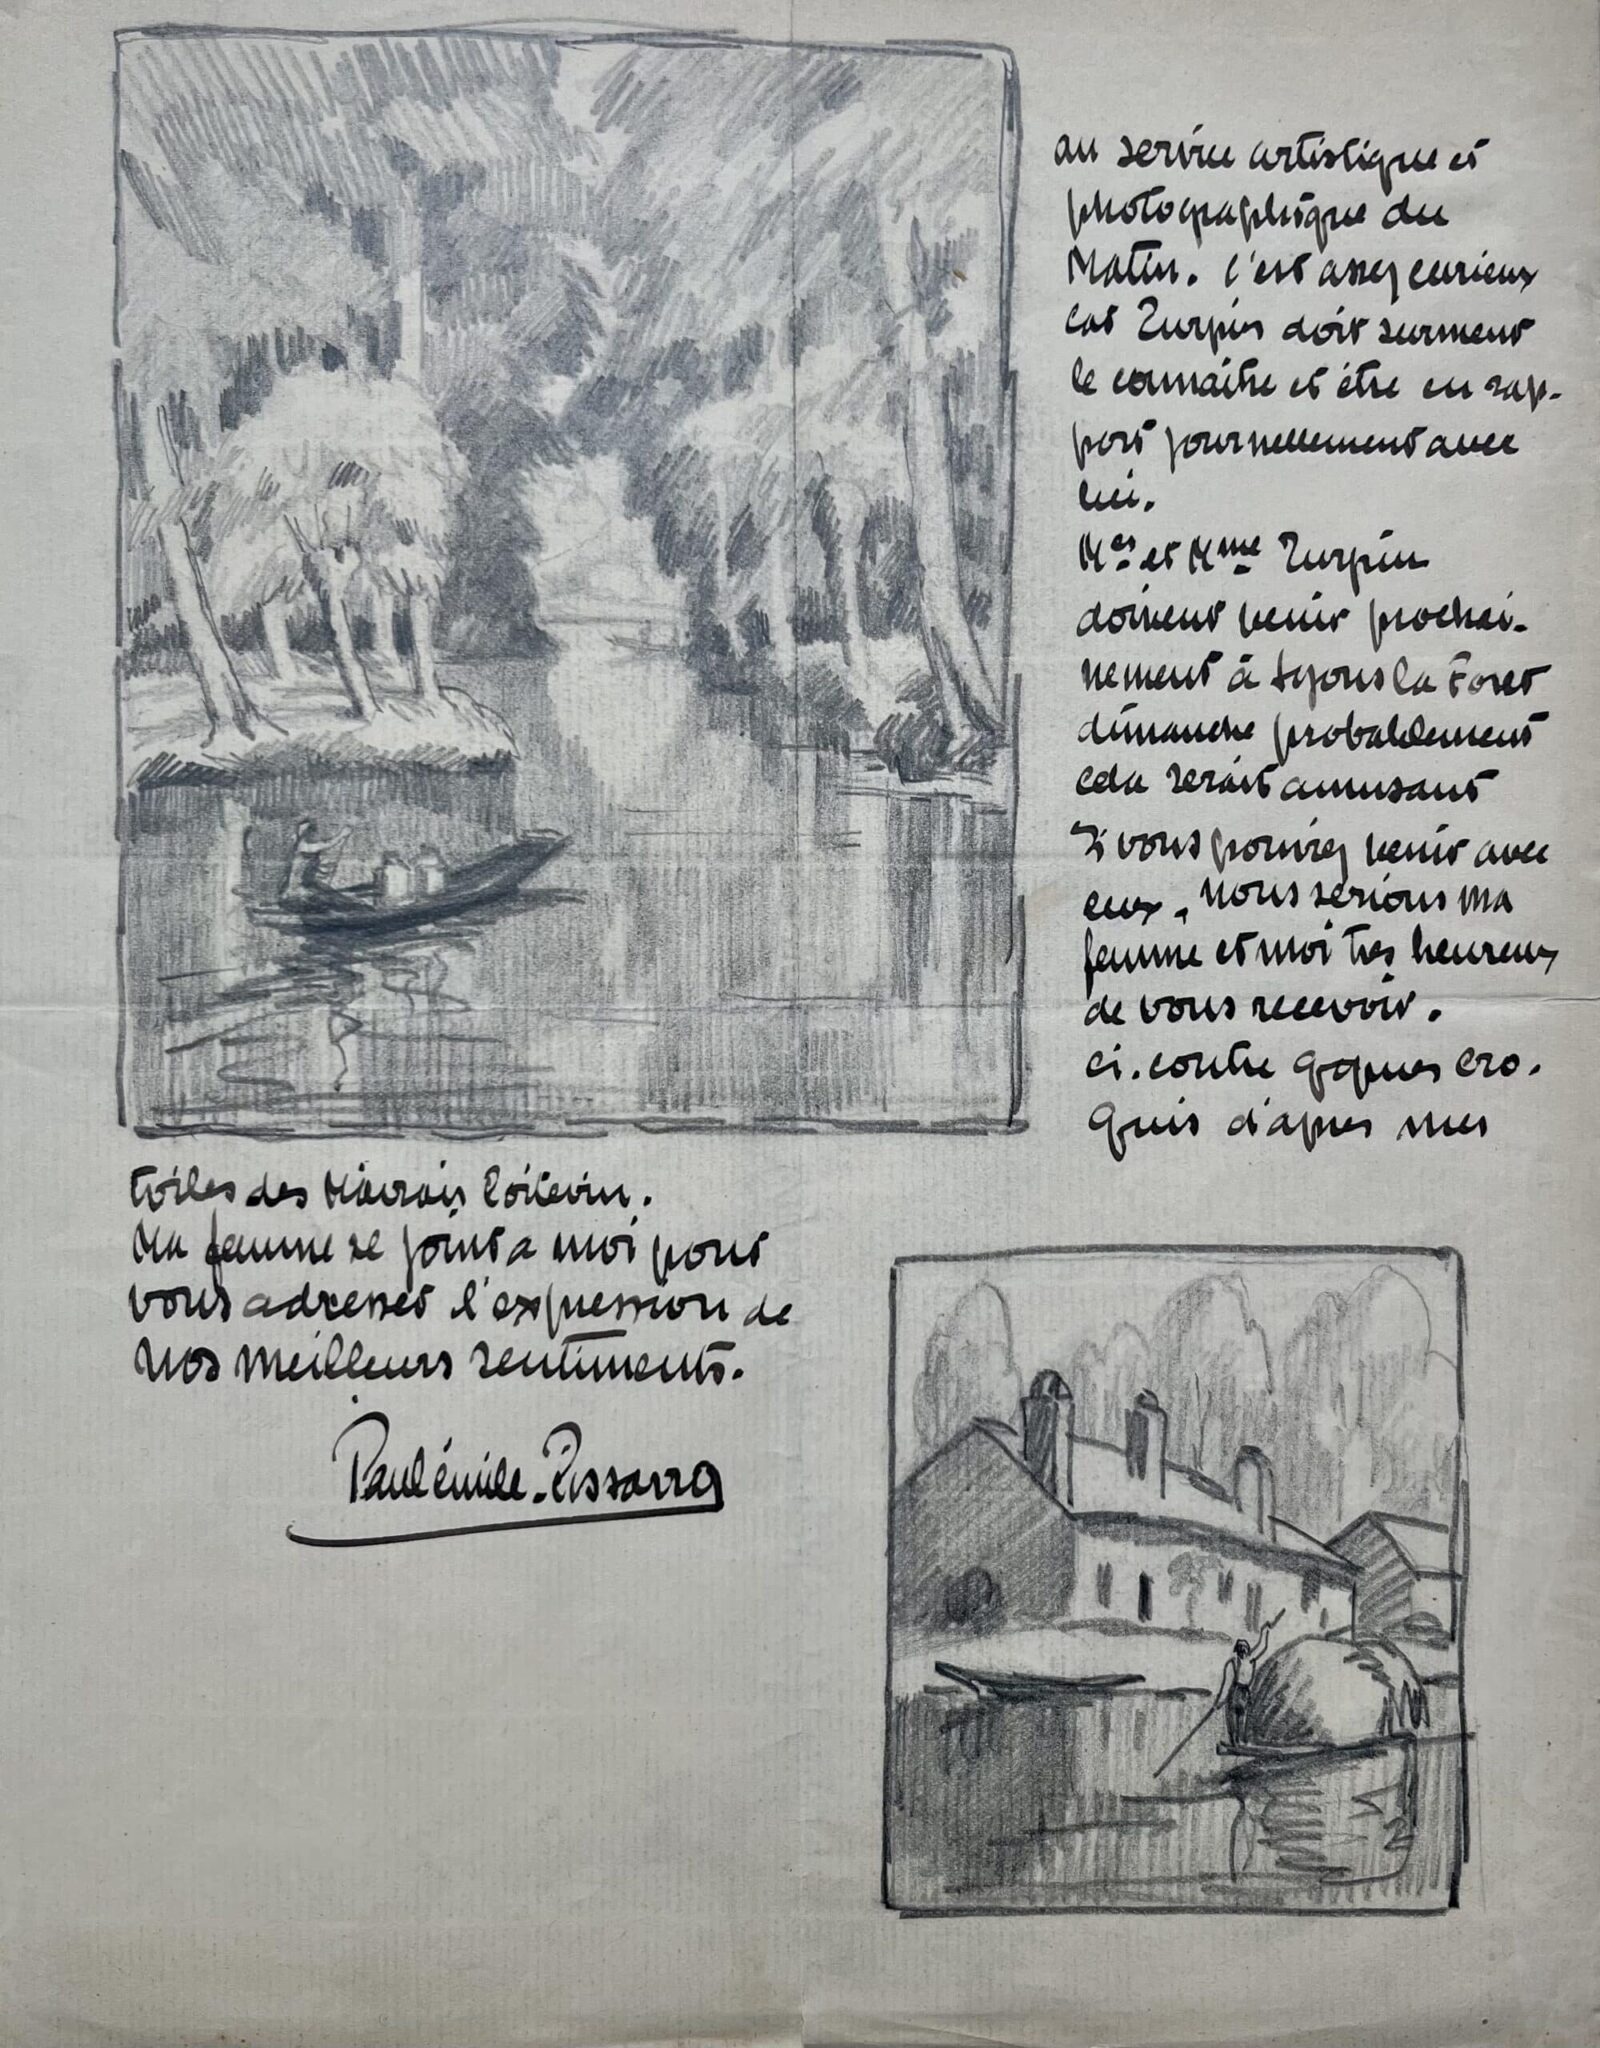 au service artistique et
photographique du
Matin. C'est assez curieux
car Turpin doit surment
le connaitre et être en rap-
port journellement avec
lui.
Mr et Mme Turpin
doivent venir prochai-
nement à Lyons la Foret
dimanche probablement
cela serait amusant
Si vous pouviez venir avec
eux, nous serions ma
femme et moi très heureux
de vous recevoir.
Ci-contre qques cro-
quis d'après mes
toiles des Marais Poitevin.
Ma femme se joint a moi pour
vous adresser l'expression de
nos meilleurs sentiments.
Paulémile-Pissarro